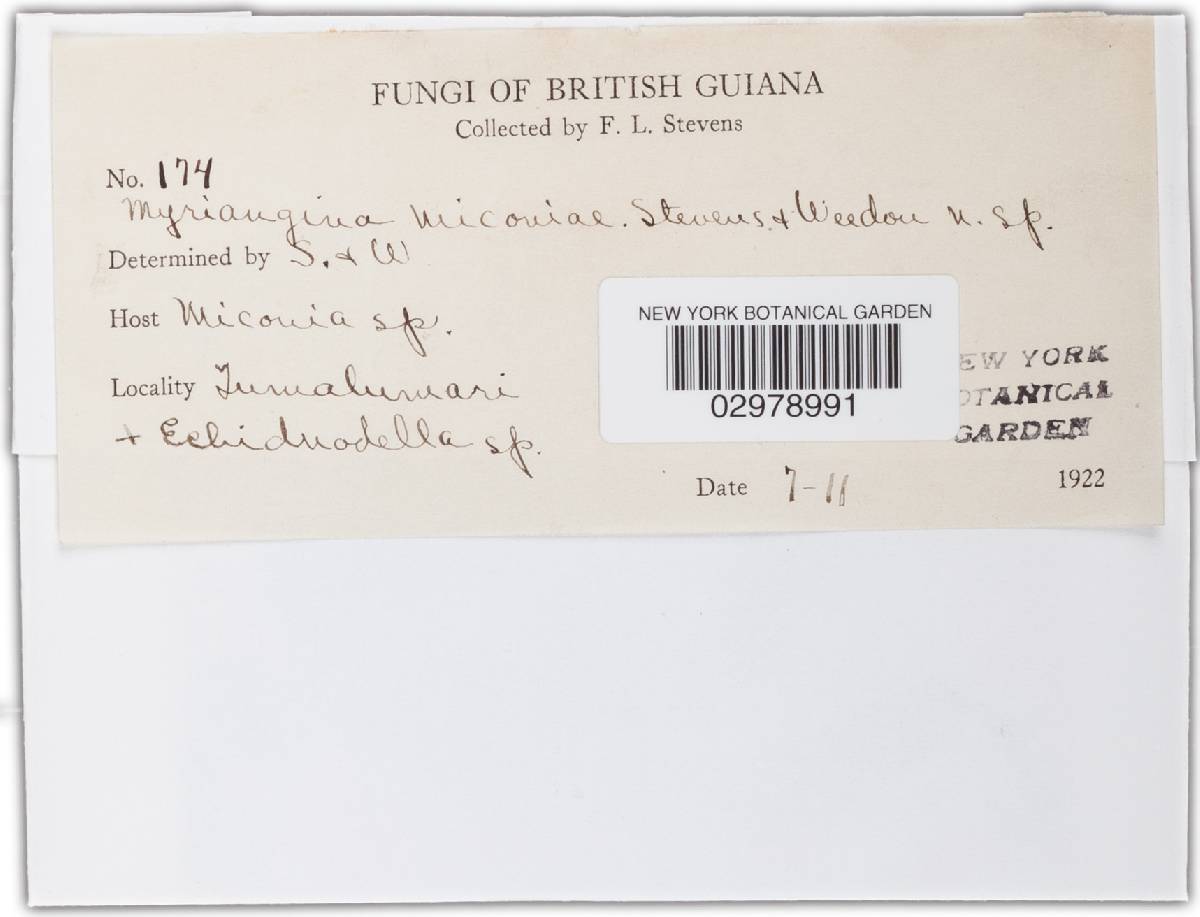 FUNGI OF BRITISH GUIANA
Collected by F. L. Stevens
No. 174
Myriangina Miconiae. Stevens & Weedon n. sp.
Determined by S. & W
Host Miconia sp.
Locality Tumatumari
+ Echidnodella sp.
NEW YORK BOTANICAL GARDEN
02978991
EW YORK
OTANICAL
GARDEN
Date 7-11 1922